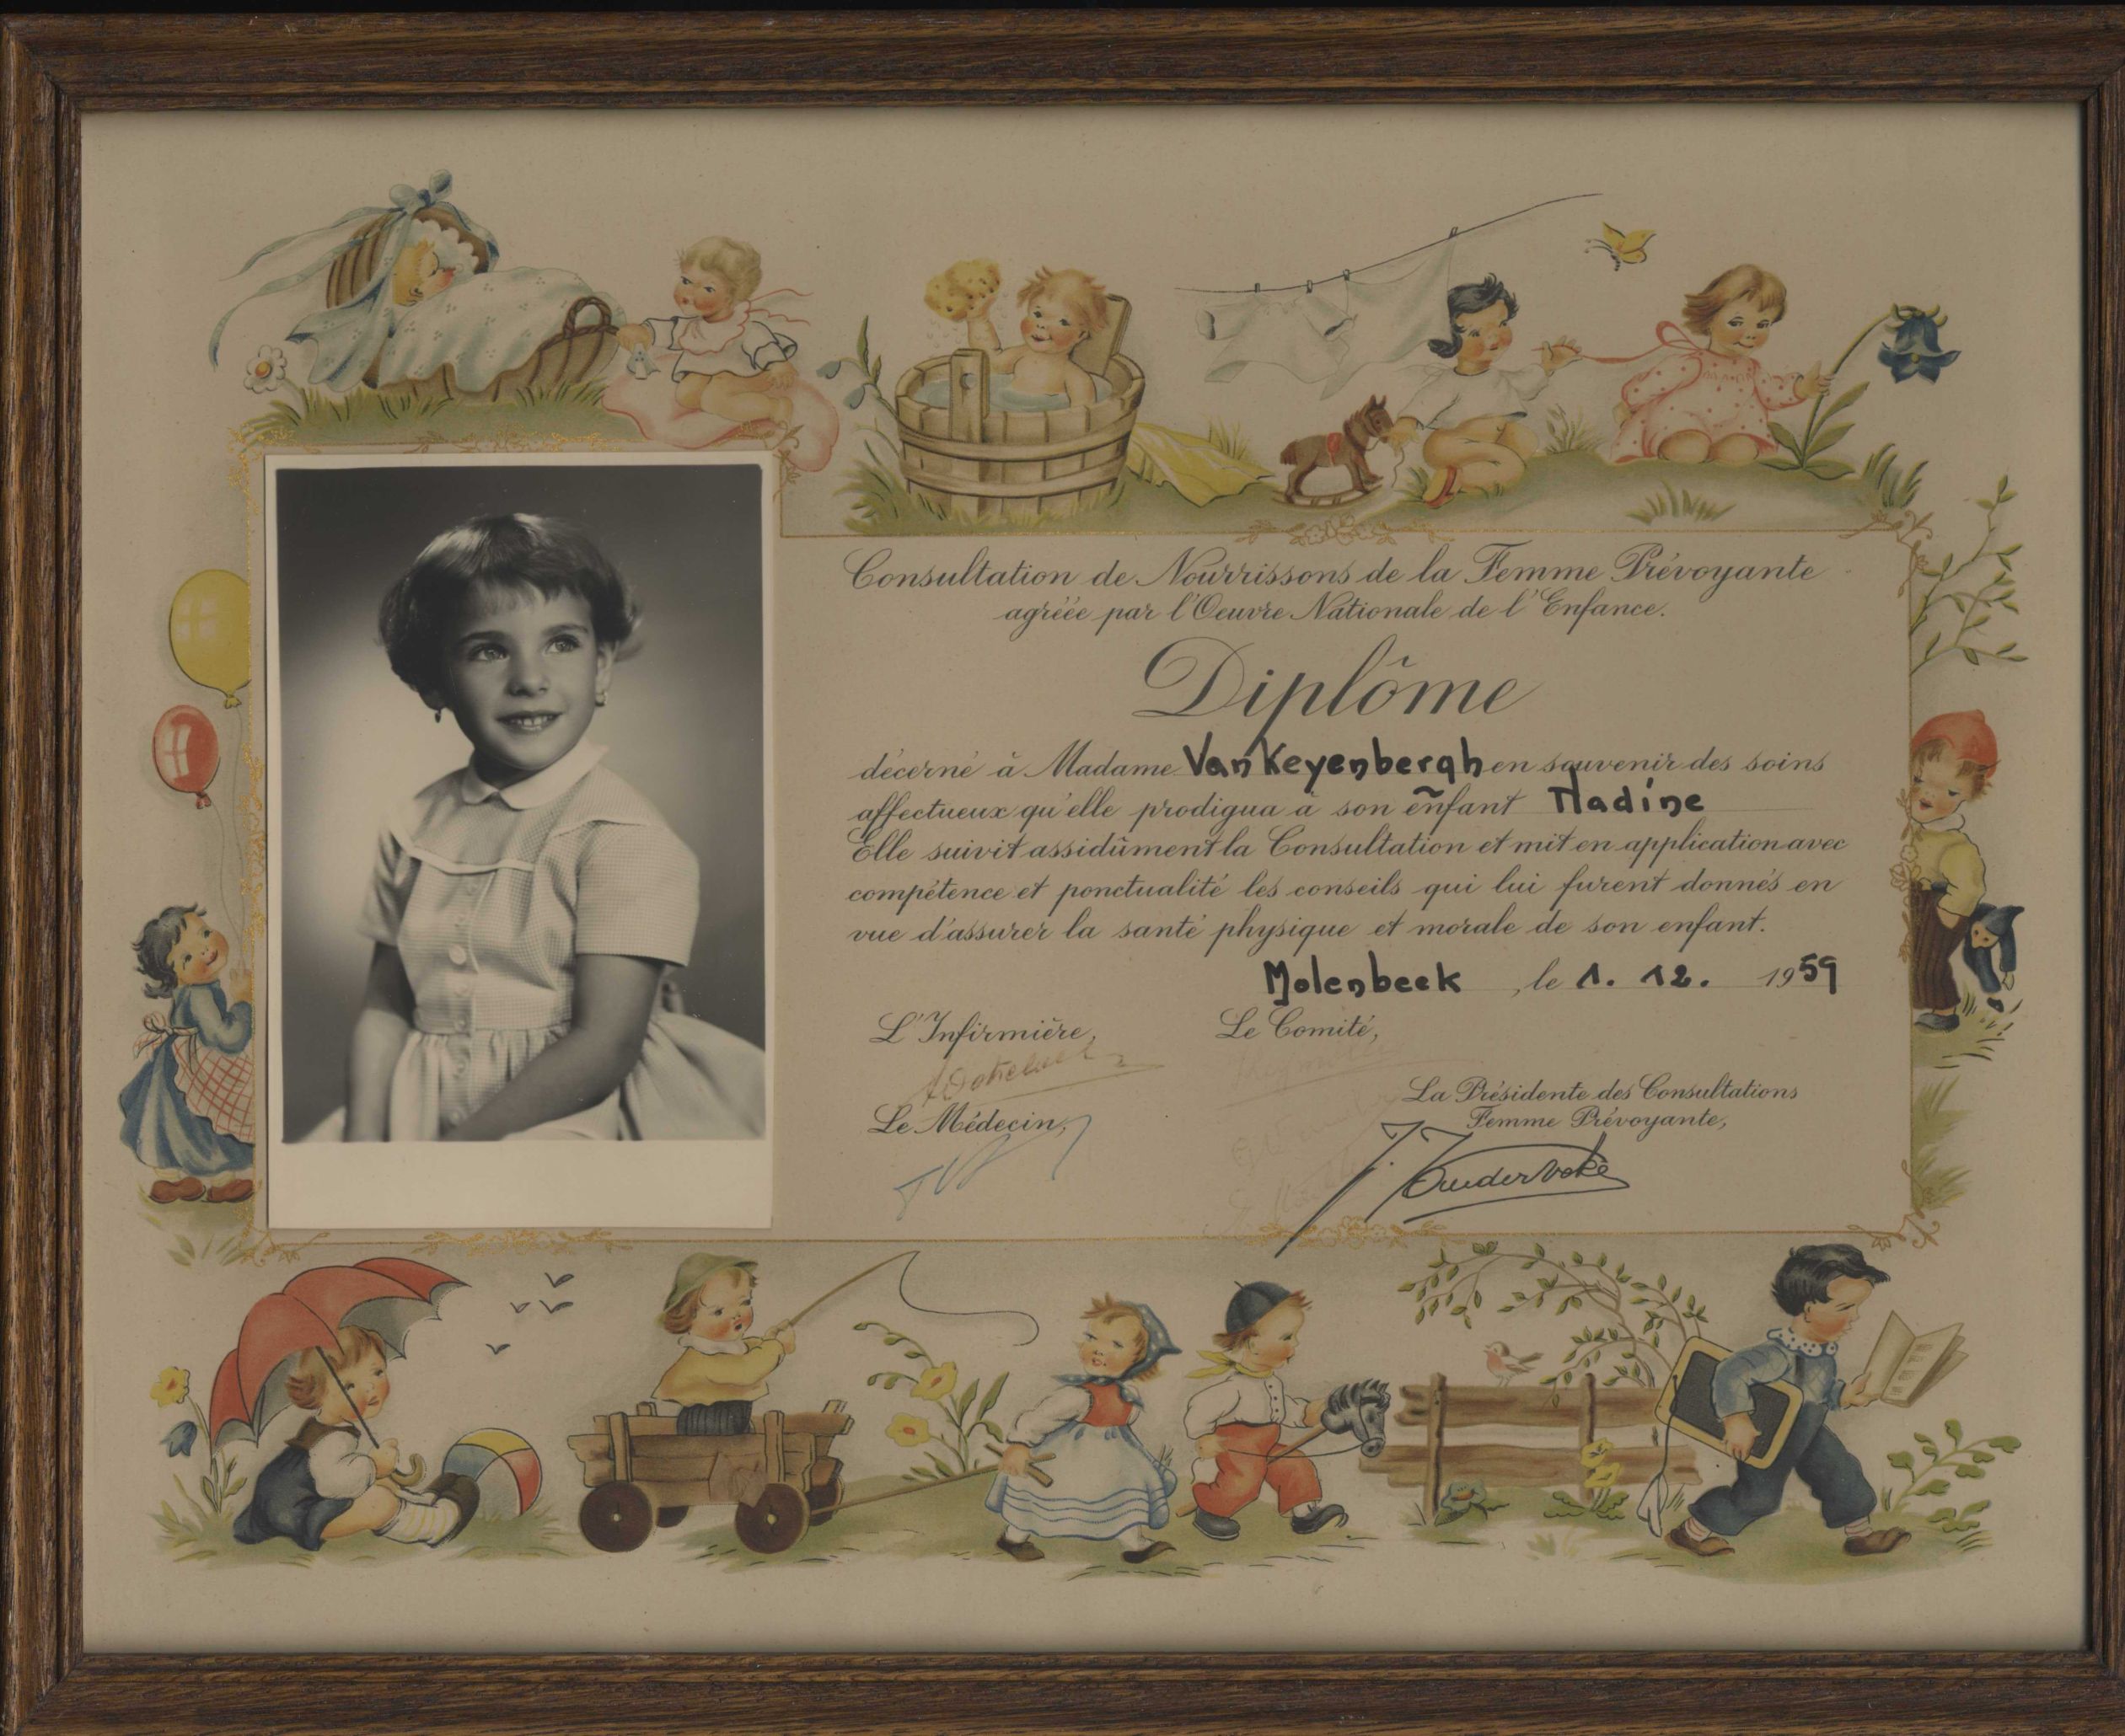 Consultation de Nourrissons de la Femme Prévoyante
agréée par l'Oeuvre Nationale de l'Enfance.
Diplôme
décerné à Madame Van Keyenbergh en souvenir des soins
affectueux qu'elle prodigua à son enfant Nadine
Elle suivit assidûment la Consultation et mit en application avec
compétence et ponctualité les conseils qui lui furent donnés en
vue d'assurer la santé physique et morale de son enfant.
Molenbeek, le 1. 12. 1959
L'Infirmière, Le Comité,
La Présidente des Consultations
Femme Prévoyante,
Le Médecin,